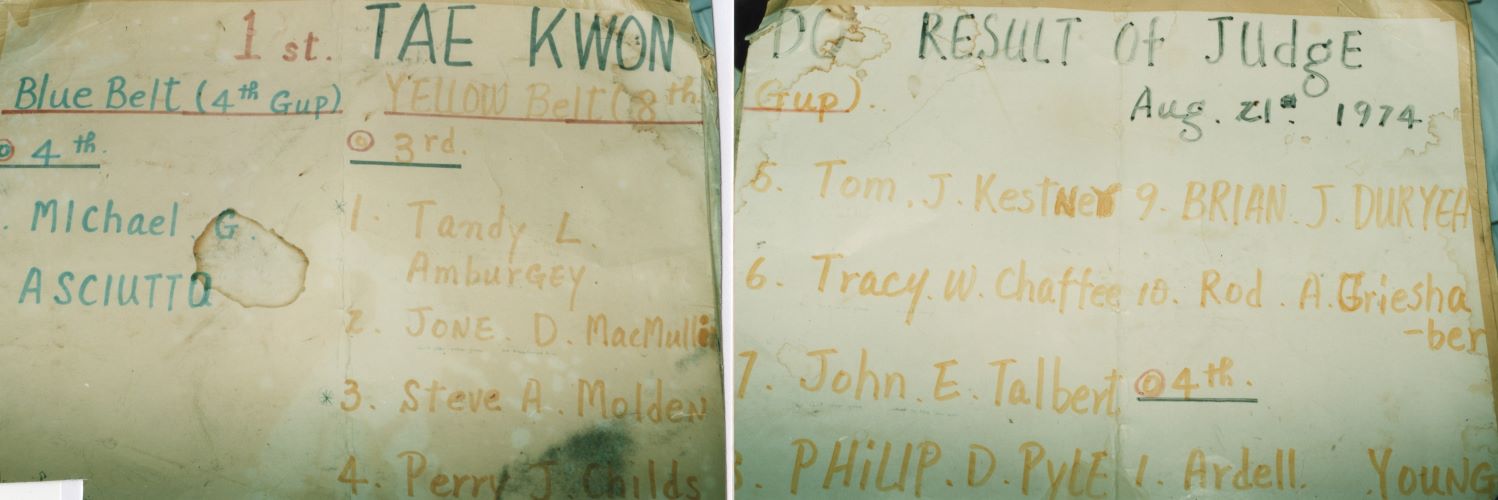 1 st. TAE KWON DO RESULT Of JUdgE
Aug. 21st 1974
Blue Belt (4th Gup)
◎ 4 th.
MIchael G.
ASCIUTTO
YELLOW Belt (8th Gup).
◎ 3rd.
* 1. Tandy L.
AmburGEY.
2. JONE. D. MacMulli
* 3. Steve A. Molden
4. Perry J. Childs
5. Tom. J. KestNer
6. Tracy. W. Chaffee
7. John. E. Talbert
PHiLIP. D. PylE
9. BRIAN. J. DURYEA
10. Rod. A. Griesha
-ber
◎ 4th.
1. Ardell. YOUNG